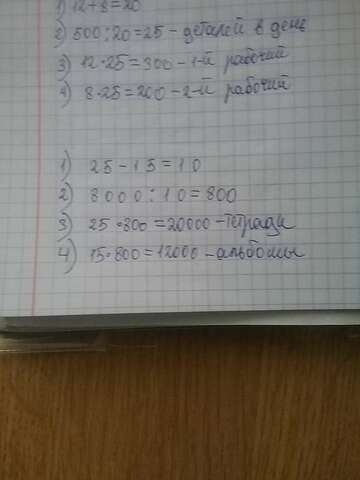 1) 12+8=20
2) 500:20=25 - деталей в день
3) 12·25=300 - 1-й рабочий
4) 8·25=200 - 2-й рабочий
1) 25-15=10
2) 8000:10=800
3) 25·800=20000 - тетради
4) 15·800=12000 - альбомы